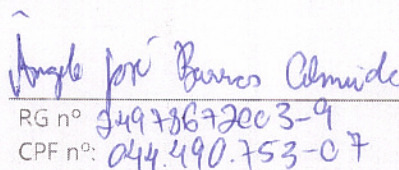 Ângelo José Barros Almeida
RG nº 24978672003-9
CPF nº: 044.490.753-07